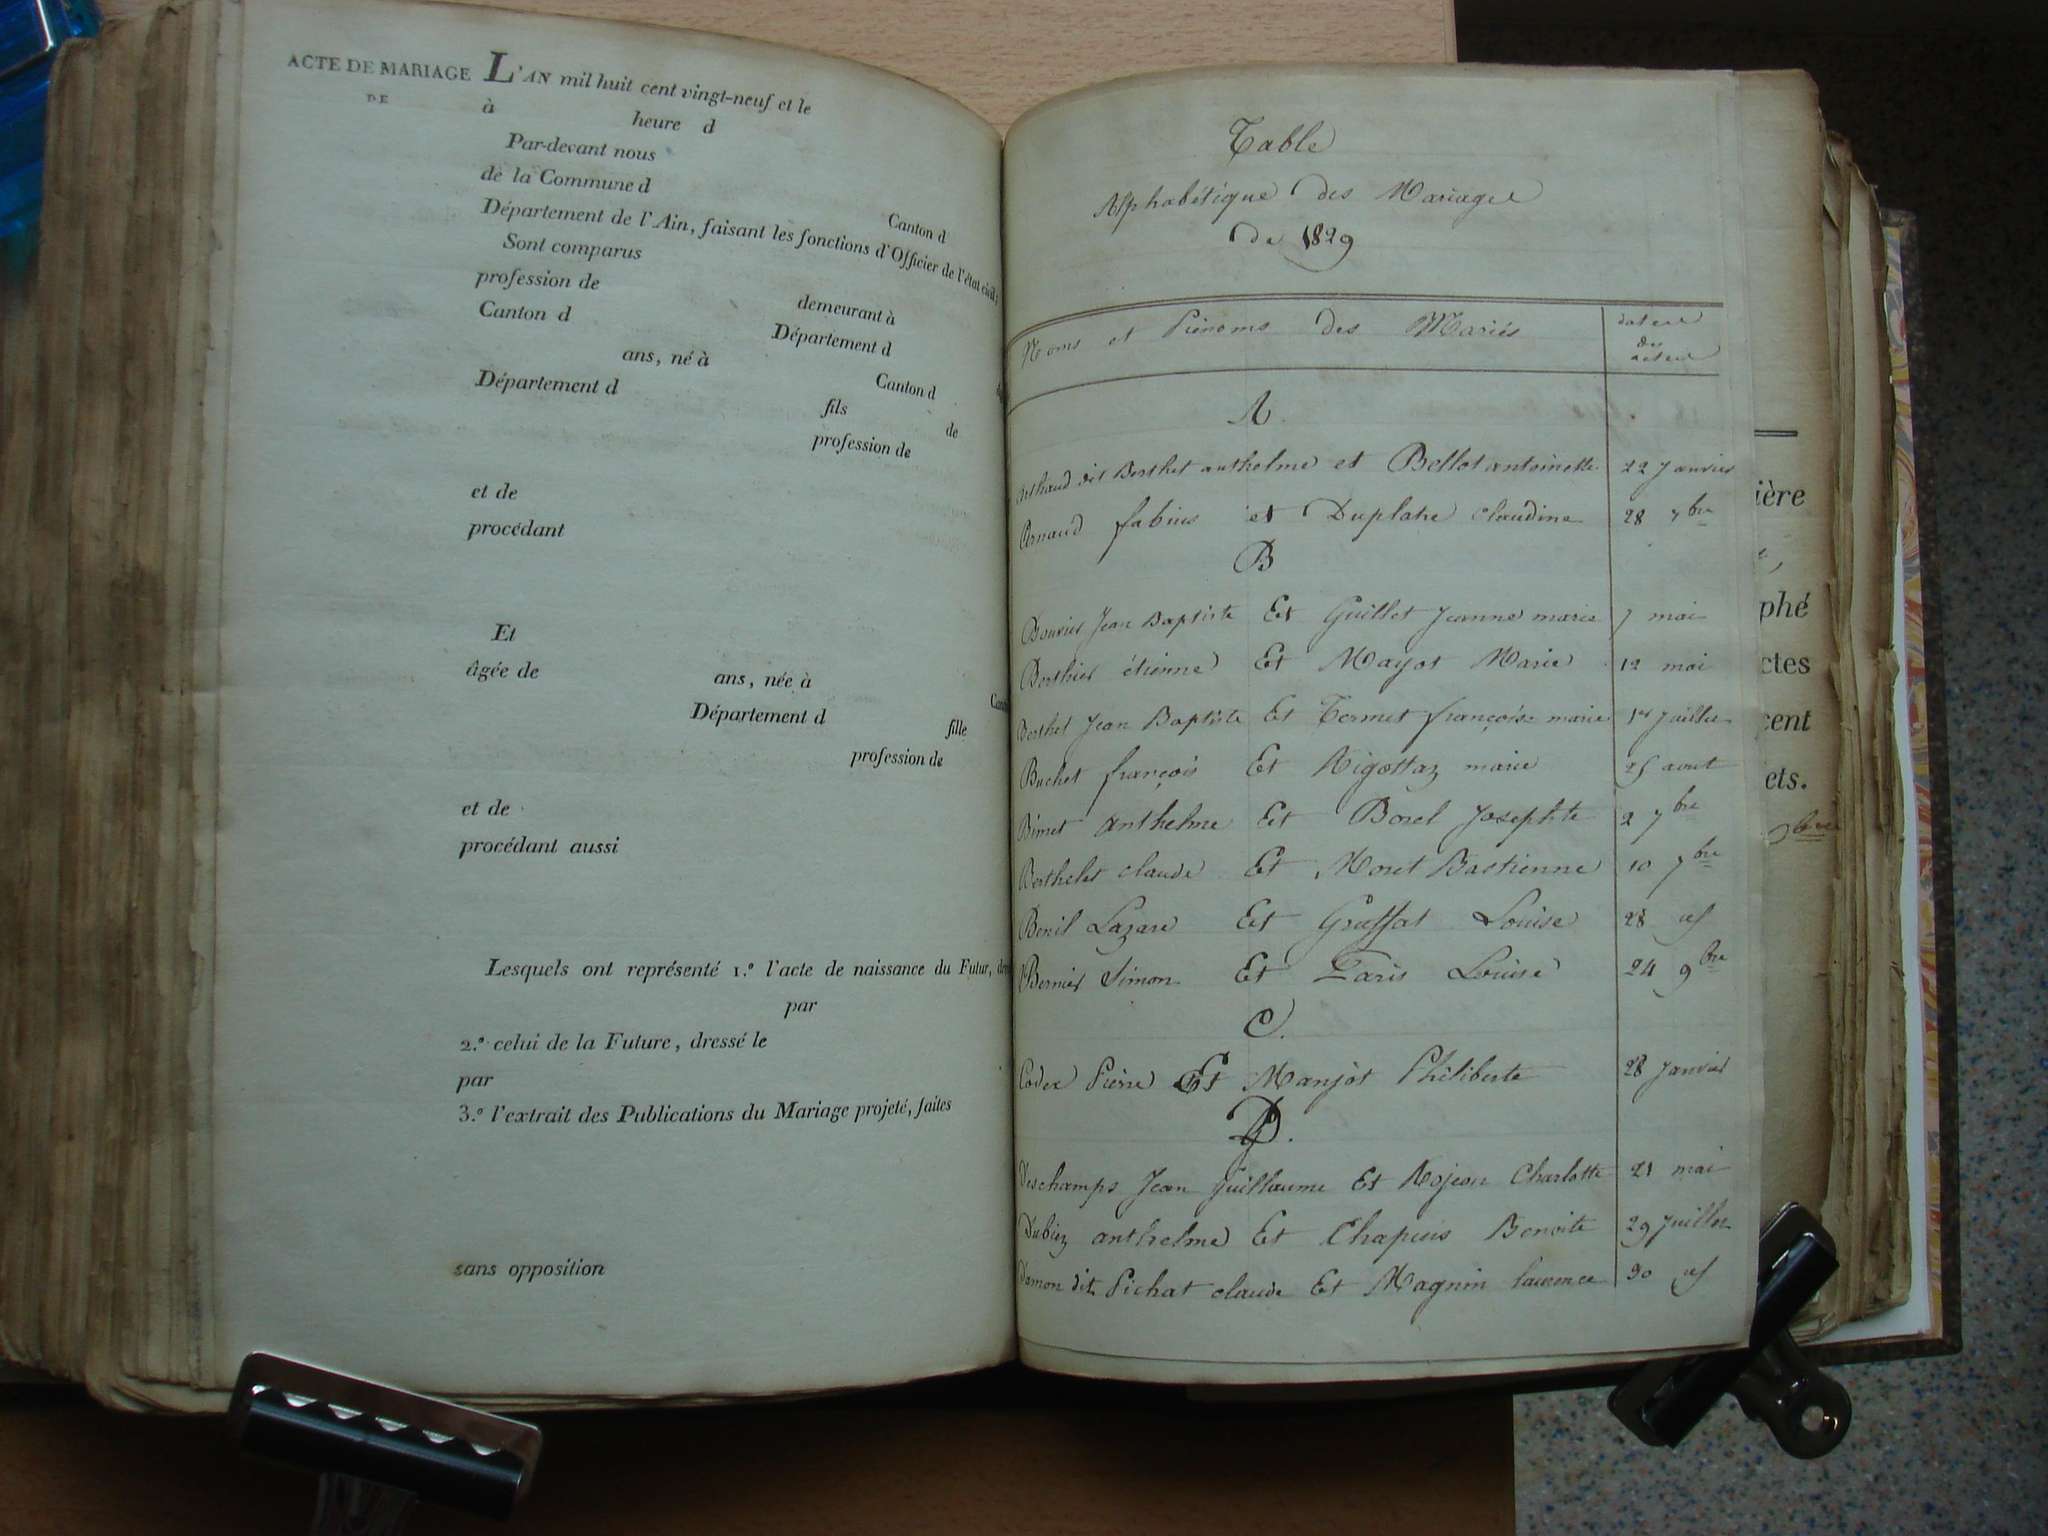 ACTE DE MARIAGE L'AN mil huit cent vingt-neuf et le
DE à heure d
Par-devant nous
de la Commune d
Canton d
Département de l'Ain, faisant les fonctions d'Officier de l'état civil;
Sont comparus
profession de demeurant à
Canton d Département d
ans, né à Canton d
Département d fils de
profession de
et de
procédant
Et
âgée de ans, née à
Département d fille
profession de
et de
procédant aussi
Lesquels ont représenté 1.° l'acte de naissance du Futur,
par
2.° celui de la Future, dressé le
par
3.° l'extrait des Publications du Mariage projeté, faites
sans opposition
Table
Alphabétique des Mariages
de 1829
Noms et Prénoms des Mariés
dates
des
actes
A.
Arthaud dit Berthet anthelme et Bellot antoinette 22 Janvier
Arnaud fabius et Duplatre claudine 28 7bre
B
Bouvier Jean Baptiste Et Guillot Jeanne marie 7 mai
Berthier étienne Et Mayot Marie 12 mai
Berthet Jean Baptiste Et Termet françoise marie 1er Juillet
Buchet françois Et Rigottaz marie 25 aout
Bimet anthelme Et Borel Josephte 2 7bre
Berthelet claude Et Moret Bastienne 10 7bre
Benil Lazare Et Gruffat Louise 28
Bernier Simon Et Paris Louise 24 9bre
C.
Coder Pierre Et Manjot Philiberte 28 Janvier
D.
Deschamps Jean Guillaume Et Rojeon Charlotte 21 mai
Dubiez anthelme Et Chapuis Benoite 29 Juillet
Damon dit Pichat claude Et Magnin laurence 30
ière
phé
ctes
cent
ets.
9bre